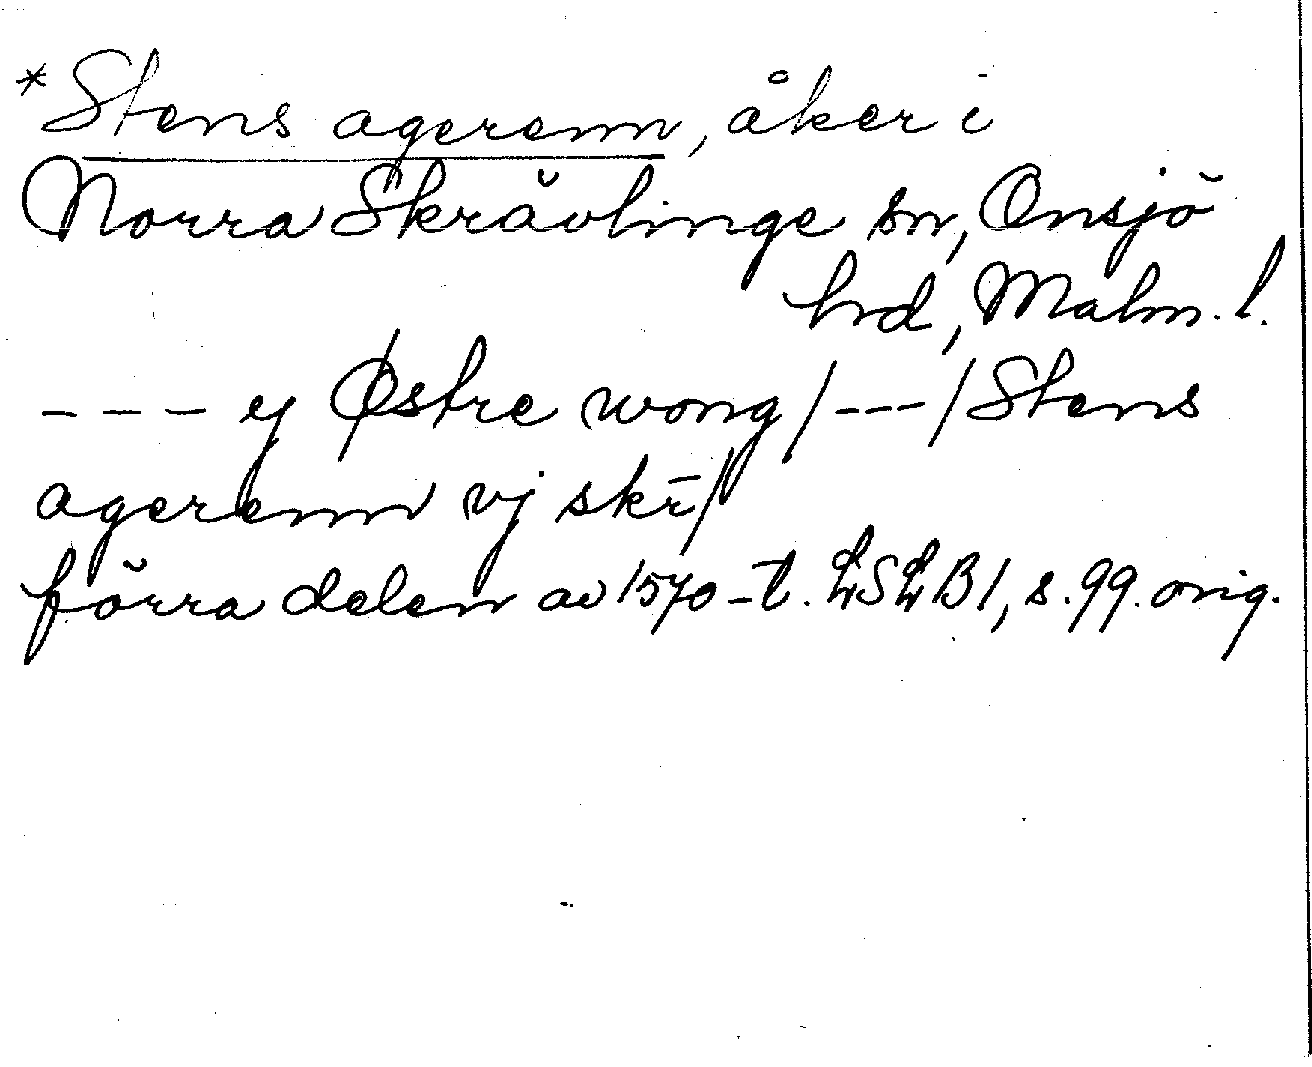 *Stens agerenn, åker i
Norra Skrävlinge sn, Onsjö
hrd, Malm. l.
--- ej Østre wong/---/Stens
agerenn vj skr̄/
förra delen av 1570-t. LSLB1, s. 99. orig.